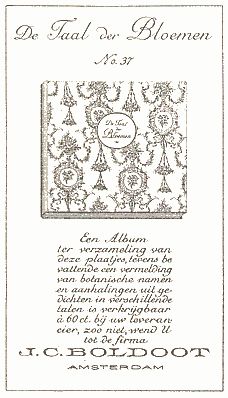 De Taal der Bloemen
No. 37
De Taal
der
Bloemen
Een Album
ter verzameling van
deze plaatjes, tevens be
vattende een vermelding
van botanische namen
en aanhalingen uit ge
dichten in verschillende
talen is verkrijgbaar
à 60 ct. bij uw leveran
cier, zoo niet, wend U
tot de firma
J. C. BOLDOOT
AMSTERDAM